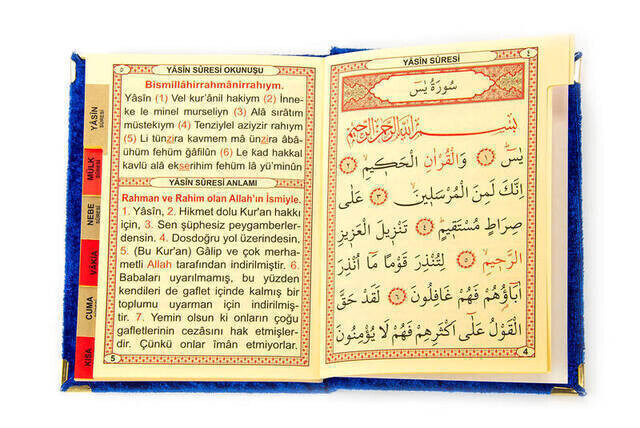 YÂSİN SÛRESİ OKUNUŞU
Bismillâhirrahmânirrahıym.
Yâsîn (1) Vel kur'ânil hakiym (2) İnne-
ke le minel murseliyn (3) Alâ sırâtım
müstekıym (4) Tenziylel aziyzir rahıym
(5) Li tünzira kavmem mâ ünzira âbâ-
ühüm fehüm ğâfilûn (6) Le kad hakkal
kavlü alâ ekserihim fehüm lâ yü'minûn
YÂSİN SÛRESİ ANLAMI
Rahman ve Rahim olan Allah'ın İsmiyle.
1. Yâsîn, 2. Hikmet dolu Kur'an hakkı
için, 3. Sen şüphesiz peygamberler-
densin. 4. Dosdoğru yol üzerindesin.
5. (Bu Kur'an) Gâlip ve çok merha-
metli Allah tarafından indirilmiştir. 6.
Babaları uyarılmamış, bu yüzden
kendileri de gaflet içinde kalmış bir
toplumu uyarman için indirilmiş-
tir. 7. Yemin olsun ki onların çoğu
gafletlerinin cezasını hak etmişler-
dir. Çünkü onlar îmân etmiyorlar.
5
YÂSİN
SÛRESİ
MÜLK
SÛRESİ
NEBE
SÛRESİ
VÂKIA
CUMA
KISA
YÂSİN SÛRESİ
٤
سُورَةُ يٰسٓ
بِسْمِ اللّٰهِ الرَّحْمٰنِ الرَّحِيمِ
يٰسٓ ﴿١﴾ وَالْقُرْاٰنِ الْحَكِيمِ ﴿٢﴾
اِنَّكَ لَمِنَ الْمُرْسَلِينَ ﴿٣﴾ عَلٰى
صِرَاطٍ مُسْتَقِيمٍ ﴿٤﴾ تَنْزِيلَ الْعَزِيزِ
الرَّحِيمِ ﴿٥﴾ لِتُنْذِرَ قَوْمًا مَٓا اُنْذِرَ
اٰبَٓاؤُهُمْ فَهُمْ غَافِلُونَ ﴿٦﴾ لَقَدْ حَقَّ
الْقَوْلُ عَلٰٓى اَكْثَرِهِمْ فَهُمْ لَا يُؤْمِنُونَ
4